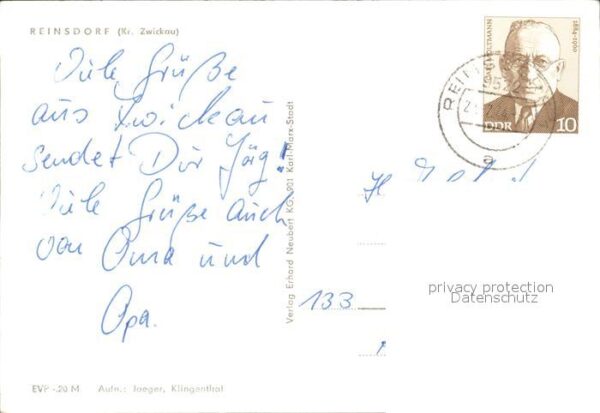 REINSDORF (Kr. Zwickau)
Viele Grüße
aus Zwickau
sendet Dir Jörg!
Viele Grüße auch
von Oma und
Opa.
EVP -.20 M Aufn.: Jaeger, Klingenthal
Verlag Erhard Neubert KG, 901 Karl-Marx-Stadt
1884-1960
DDR 10
a
133
privacy protection
Datenschutz